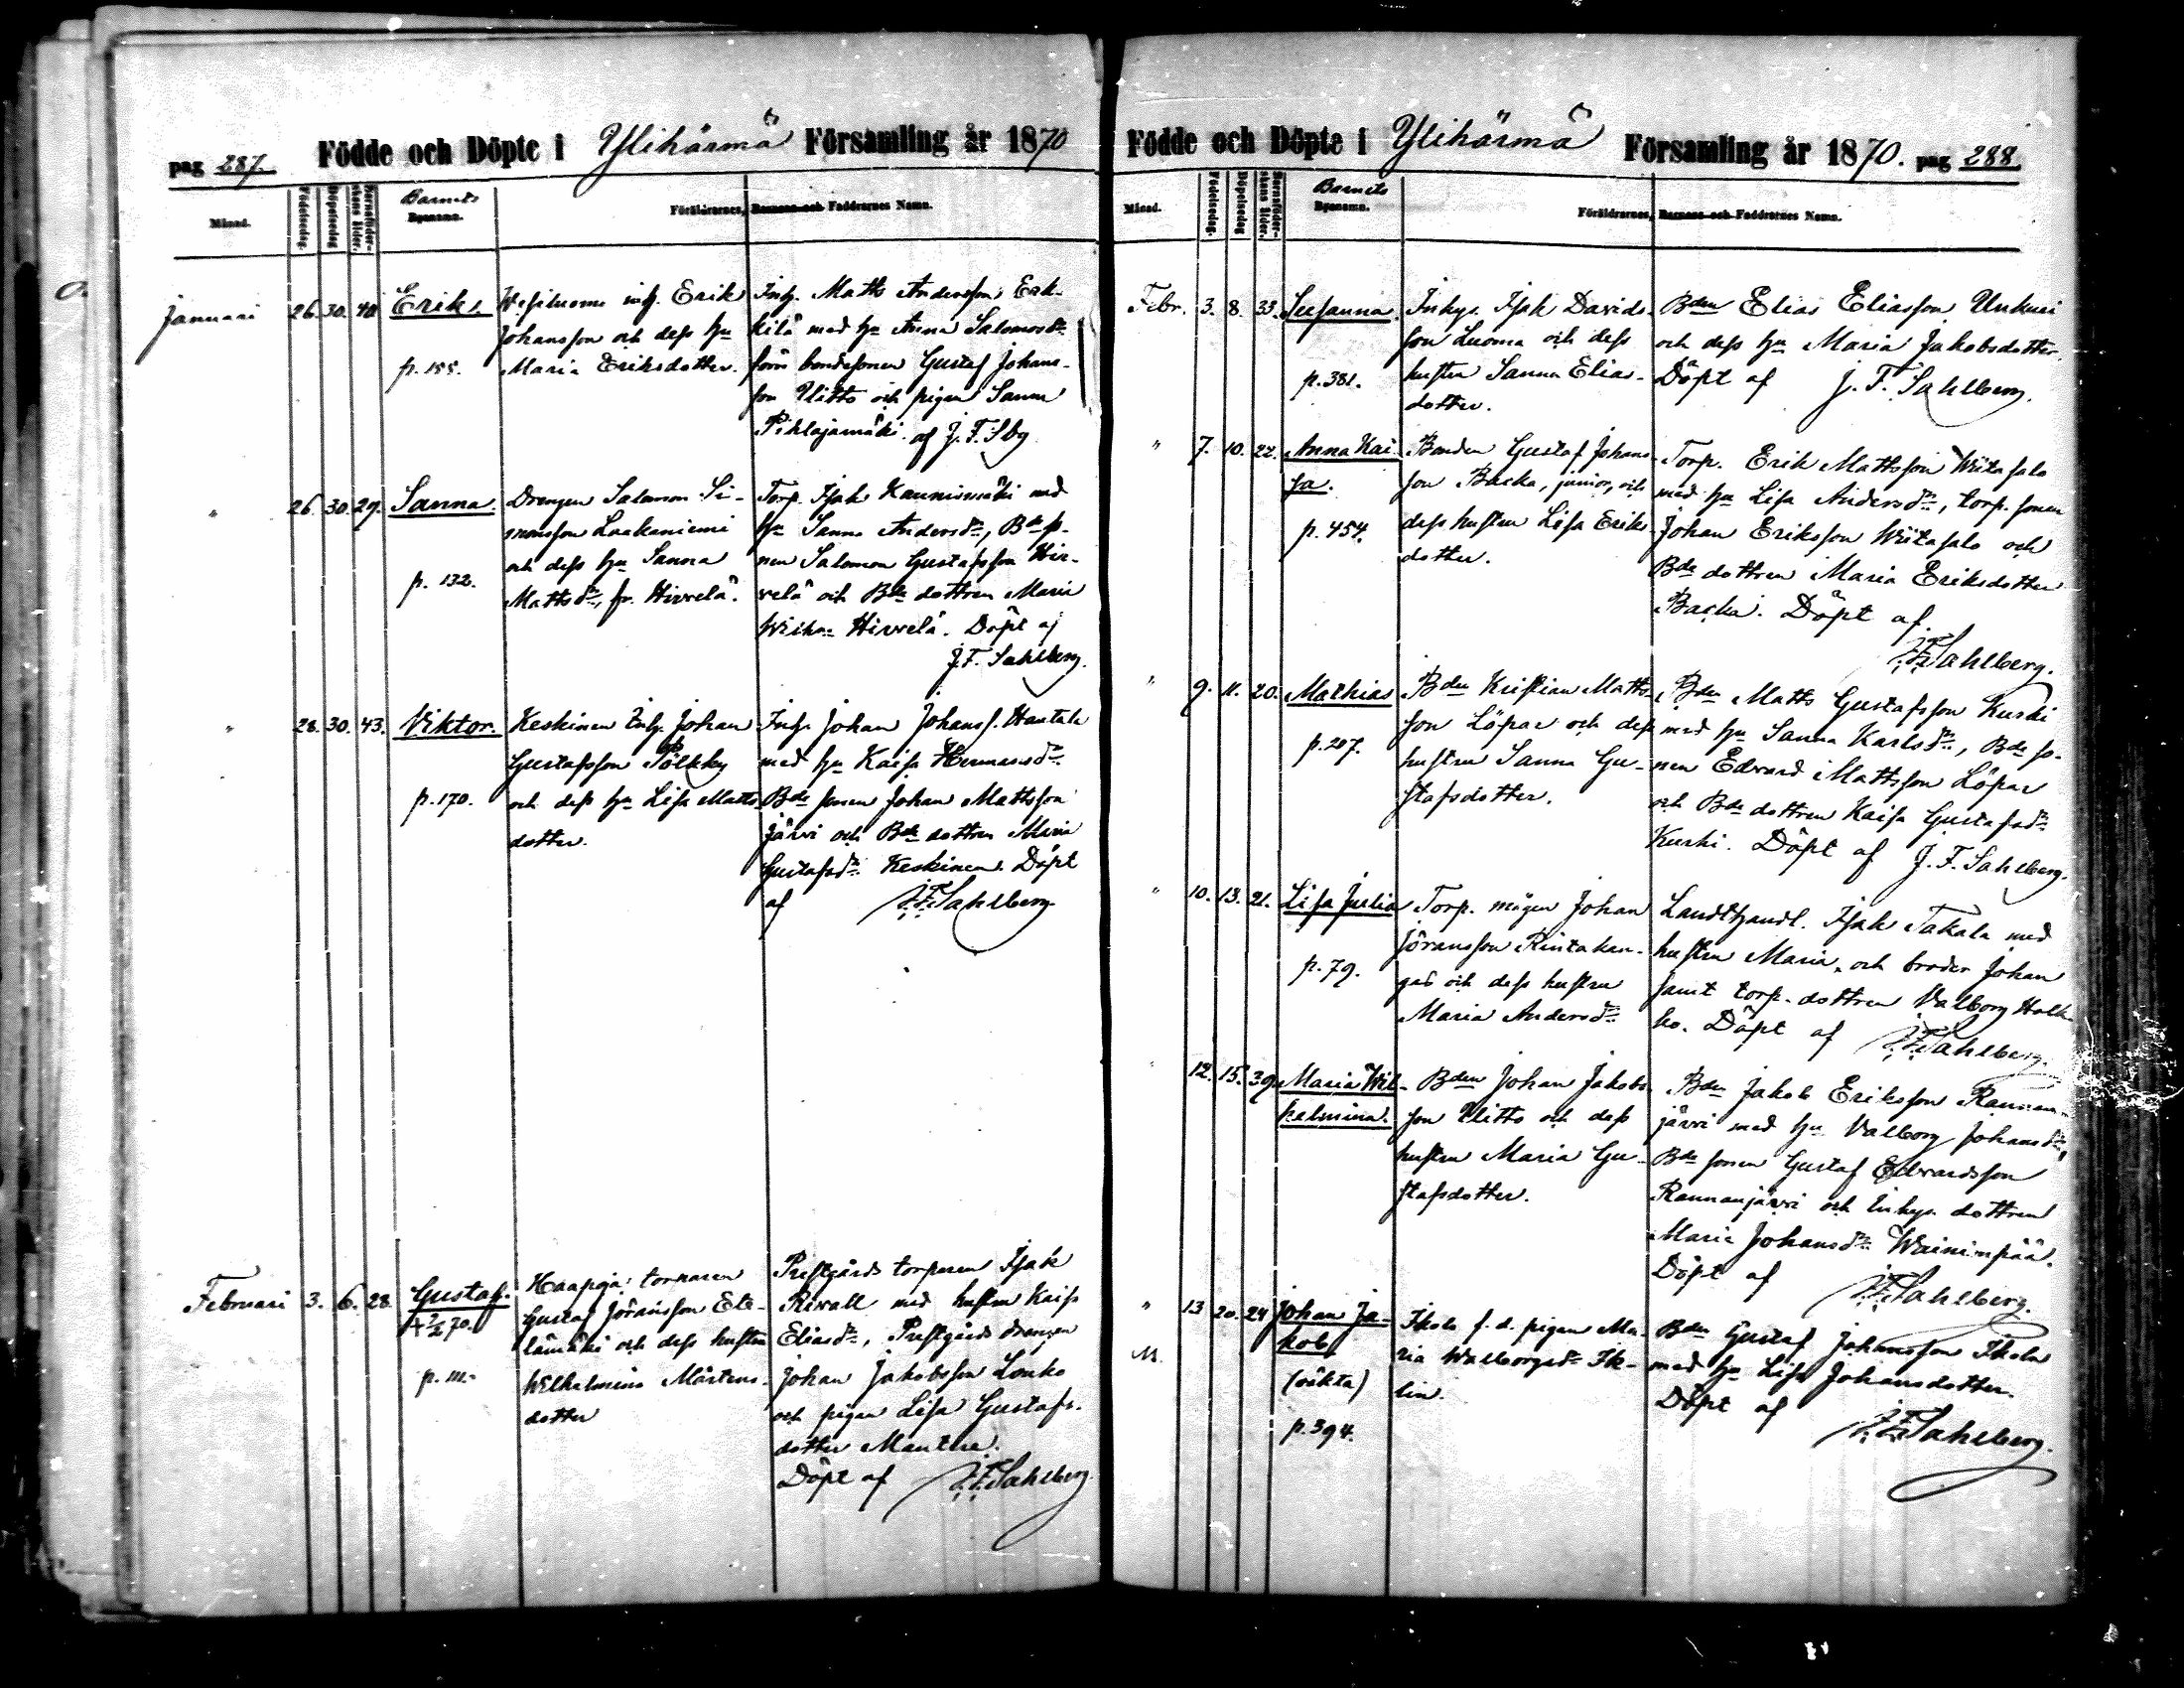 pag 287. Födde och Döpte i Ylihärmä Församling år 1870
Månad. Födelsedag. Döpelsedag Barnaföderskans ålder. Barnets Byanamn. Föräldrarnes, Barnens och Faddrarnes Namn.
Januari 26. 30. 40 Erik.
p. 188.
Wesiluoma inh. Erik
Johansson och dess hu
Maria Eriksdotter.
Inh. Matts Andersson Erk-
kilä med hu Anna Salomonsdr.
förre bondesonen Gustaf Johans-
son Ulitto och pigan Sanna
Pihlajamäki. af J. F. Sbg
" 26. 30. 29. Sanna.
p. 132.
Drengen Salomon Si-
monsson Laakaniemi
och dess hu Sanna
Mattsdr, fr. Hirvelä.
Torp. Isak Kaunismäki med
hu Sanna Andersdr, Bdeso-
nen Salomon Gustafsson Hir-
velä och Bde dottren Maria
Hirvelä. Döpt af
J. F. Sahlberg.
" 28. 30. 43. Viktor.
p. 170.
Keskinen Inh. Johan
Gustafsson Pölkky
och dess hu Lisa Matts-
dotter.
Inh. Johan Johanss. Hantala
med hu Kaisa Hermansdr.
Bde sonen Johan Mattsson
Järvi och Bde dottren Maria
Gustafsdr. Keskinen. Döpt
af J. F. Sahlberg
Februari 3. 6. 28. Gustaf.
p. 111.
Haapoja: torparen
Gustaf Jöransson Ete-
lämäki och dess hustru
Wilhelmina Mårtens-
dotter
Prestgårds torparen Isak
Riwall med hustru Kaisa
Eliasdr, Prestgårds drengen
Johan Jakobsson Louko
och pigan Lisa Gustafs-
dotter Manthe.
Döpt af J. F. Sahlberg
Födde och Döpte i Ylihärmä Församling år 1870. pag 288.
Månad. Födelsedag. Döpelsedag Barnaföderskans ålder. Barnets Byanamn. Föräldrarnes, Barnens och Faddrarnes Namn.
Febr. 3. 8. 33. Susanna.
p. 381.
Inhys. Isak Davids-
son Luoma och dess
hustru Sanna Elias-
dotter.
Bden Elias Eliasson Unkuri
och dess hu Maria Jakobsdotter.
Döpt af J. F. Sahlberg.
" 7. 10. 22. Anna Kai-
sa.
p. 454.
Bonden Gustaf Johans-
son Backa, junior, och
dess hustru Lisa Eriks-
dotter.
Torp. Erik Mattsson Wiitasalo
med hu Lisa Andersdr, torp. sonen
Johan Eriksson Wiitasalo och
Bde dottren Maria Eriksdotter
Backa. Döpt af
J. F. Sahlberg.
" 9. 11. 20. Mathias
p. 207.
Bden Kristian Matts-
son Löpar och dess
hustru Sanna Gu-
stafsdotter.
Bden Matts Gustafsson Kuski
med hu Sanna Karlsdr, Bde so-
nen Edvard Mattsson Löpar
och Bde dottren Kaisa Gustafsdr
Kuski. Döpt af J. F. Sahlberg.
" 10. 13. 21. Lisa Julia
p. 79.
Torp. mågen Johan
Jöransson Rintakan-
gas och dess hustru
Maria Andersdr
Landthandl. Isak Takala med
hustru Maria, och broder Johan
samt torp. dottren Valborg Holk-
ko. Döpt af J. F. Sahlberg.
" 12. 15. 39. Maria Wil-
helmina.
Bden Johan Jakobs-
son Ulitto och dess
hustru Maria Gu-
stafsdotter.
Bden Jakob Eriksson Rannan-
järvi med hu Valborg Johansdr,
Bde sonen Gustaf Edvardsson
Rannanjärvi och Inhys. dottren
Maria Johansdr Wainionpää.
Döpt af J. F. Sahlberg.
" 13 20. 24 Johan Ja-
kob
M.
(oäkta)
p. 394.
Ikola f. d. pigan Ma-
ria Walborgsdr Ik-
lin.
Bden Gustaf Johansson Ikola
med hu Lisa Johansdotter.
Döpt af J. F. Sahlberg.